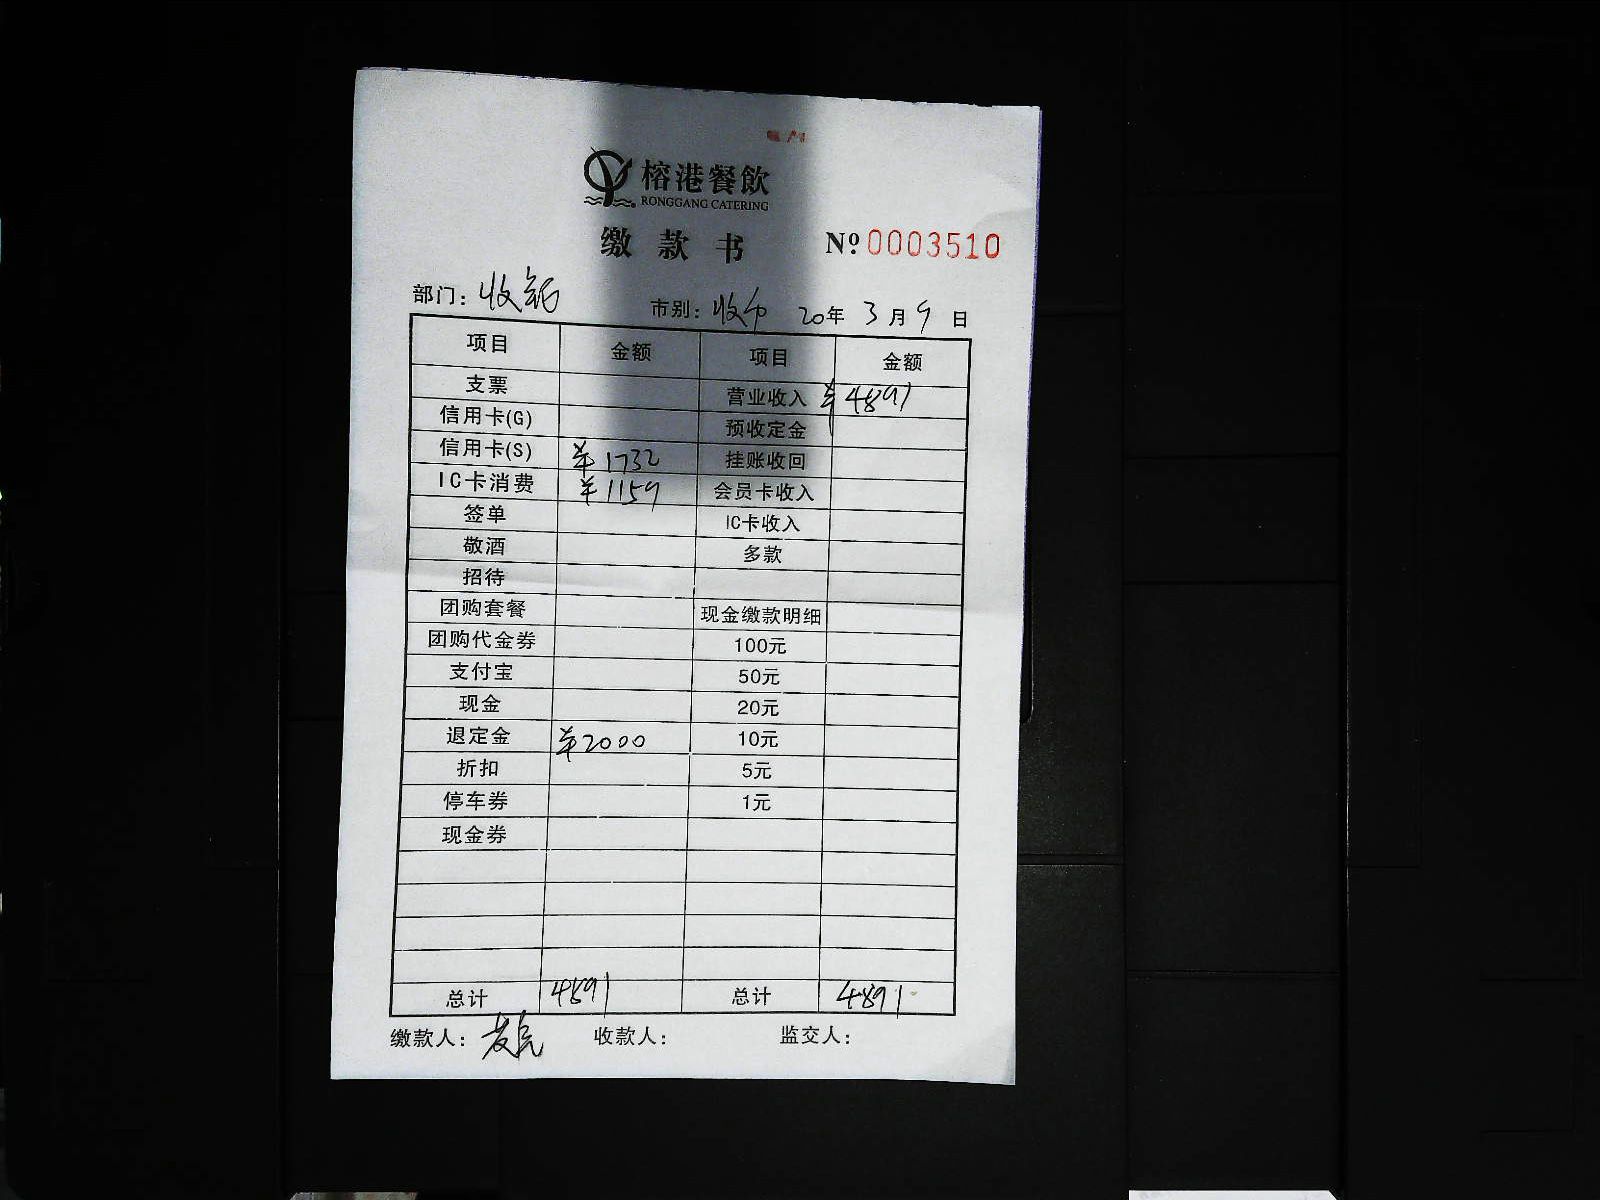 榕港餐飲
RONGGANG CATERING
缴款书 Nº 0003510
部门: 收银 市别: 20年 3月 9日
项目 金额 项目 金额
支票 营业收入 ¥4891
信用卡(G) 预收定金
信用卡(S) ¥1732 挂账收回
IC卡消费 ¥1159 会员卡收入
签单 IC卡收入
敬酒 多款
招待
团购套餐 现金缴款明细
团购代金券 100元
支付宝 50元
现金 20元
退定金 ¥2000 10元
折扣 5元
停车券 1元
现金券
总计 4891 总计 4891
缴款人: 收款人: 监交人: